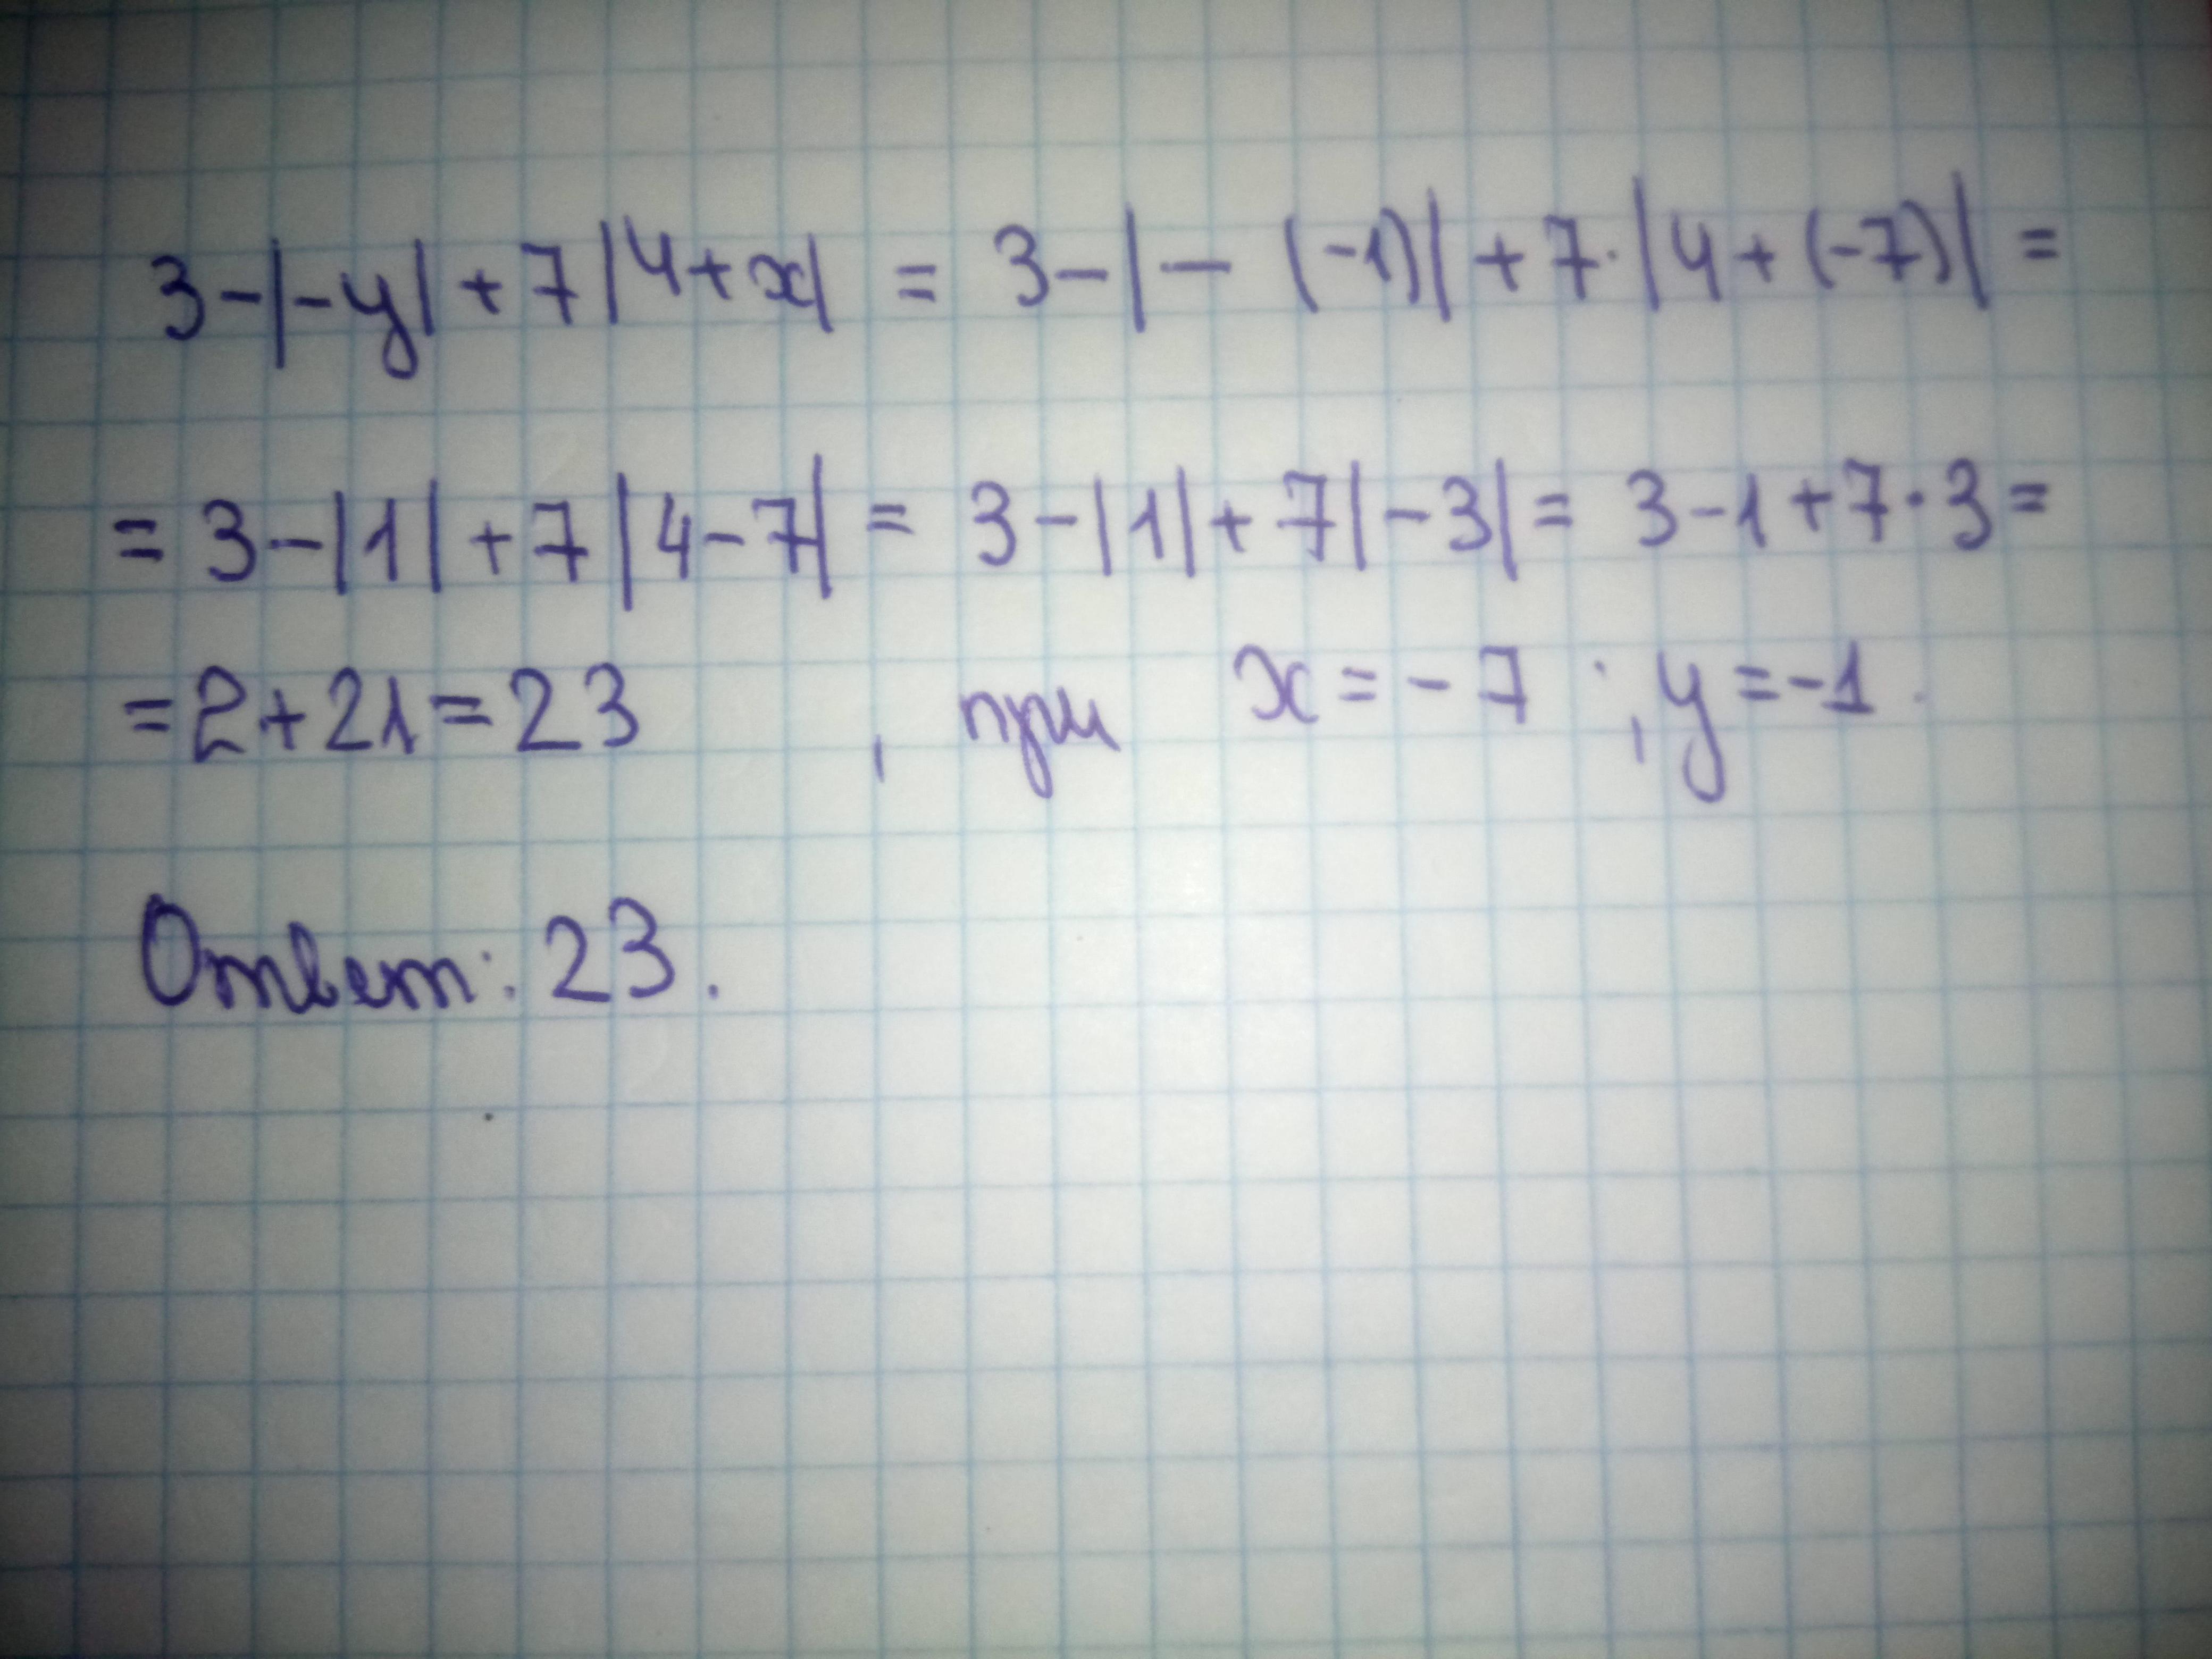 3-|-y|+7|4+x| = 3-|-(-1)|+7·|4+(-7)| =
= 3-|1|+7|4-7| = 3-|1|+7|-3| = 3-1+7·3=
=2+21=23 , при x=-7 ; y=-1.
Ответ: 23.